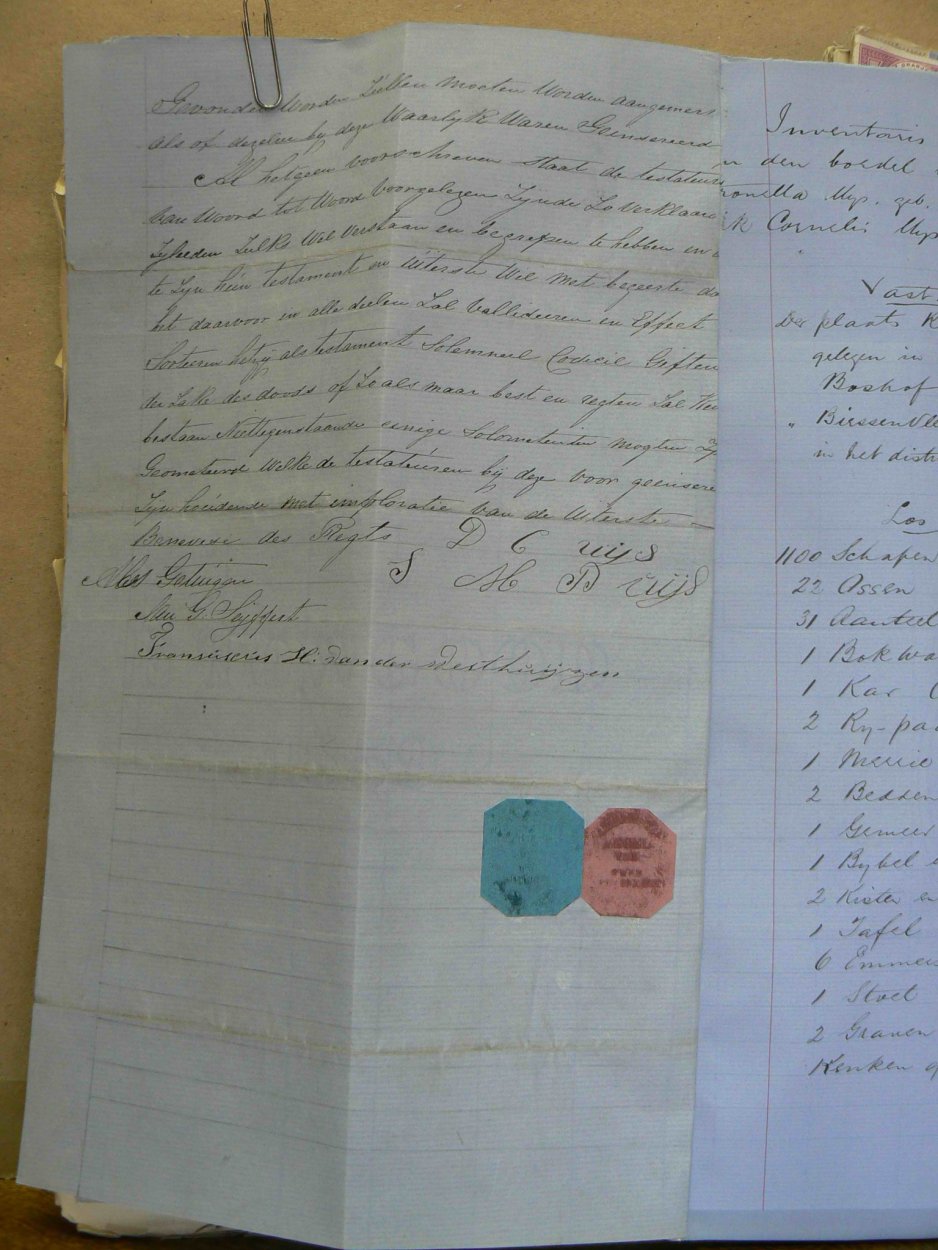 Gevonden Worden Zullen moeten Worden aangemerk
als of dezelve bij deze Waarlyk Waren Geinsereerd
Al hetgeen voorschreven staat de testateuren
van Woord tot Woord voorgelezen Zijnde Zo verklaarde
Zijlieden Zulks Wel Verstaan en begrepen te hebben en
te Zyn hún testament en Uiterste Wil met begeerte da
het daarvoor in alle deelen Zal Vallideeren en Effect
Sorteeren hetzij als testament Solemneel Codicil Giften
der Zake des doods of Zo als maar best en regten Zal
bestaan Niettegenstaande eenige Solemneteiten mogten Zy
Geometeerd Welke de testateúren bij deze voor geinsere
Zijn hoúdende met imploratie van de Uiterste
Benevese des Regts D C Uijs
Als Getuigen S M P Uijs
G. Seyffert
Franciscus H: van der Westhuijzen
Inventaris
n den boedel
ronella Uys. geb.
ik Cornelis Uys
Vast
De plaats
gelegen in
Boshof
" Biessenvle
in het distr
Los
1100 Schapen
22 Ossen
31 Aanteel
1 Bok wa
1 Kar
2 Ry-paa
1 Merrie
2 Bedden
1 Gemeer
1 Bybel e
2 Kisten en
1 Tafel
6 Emmers
1 Stoel
2 Graven
Keuken g